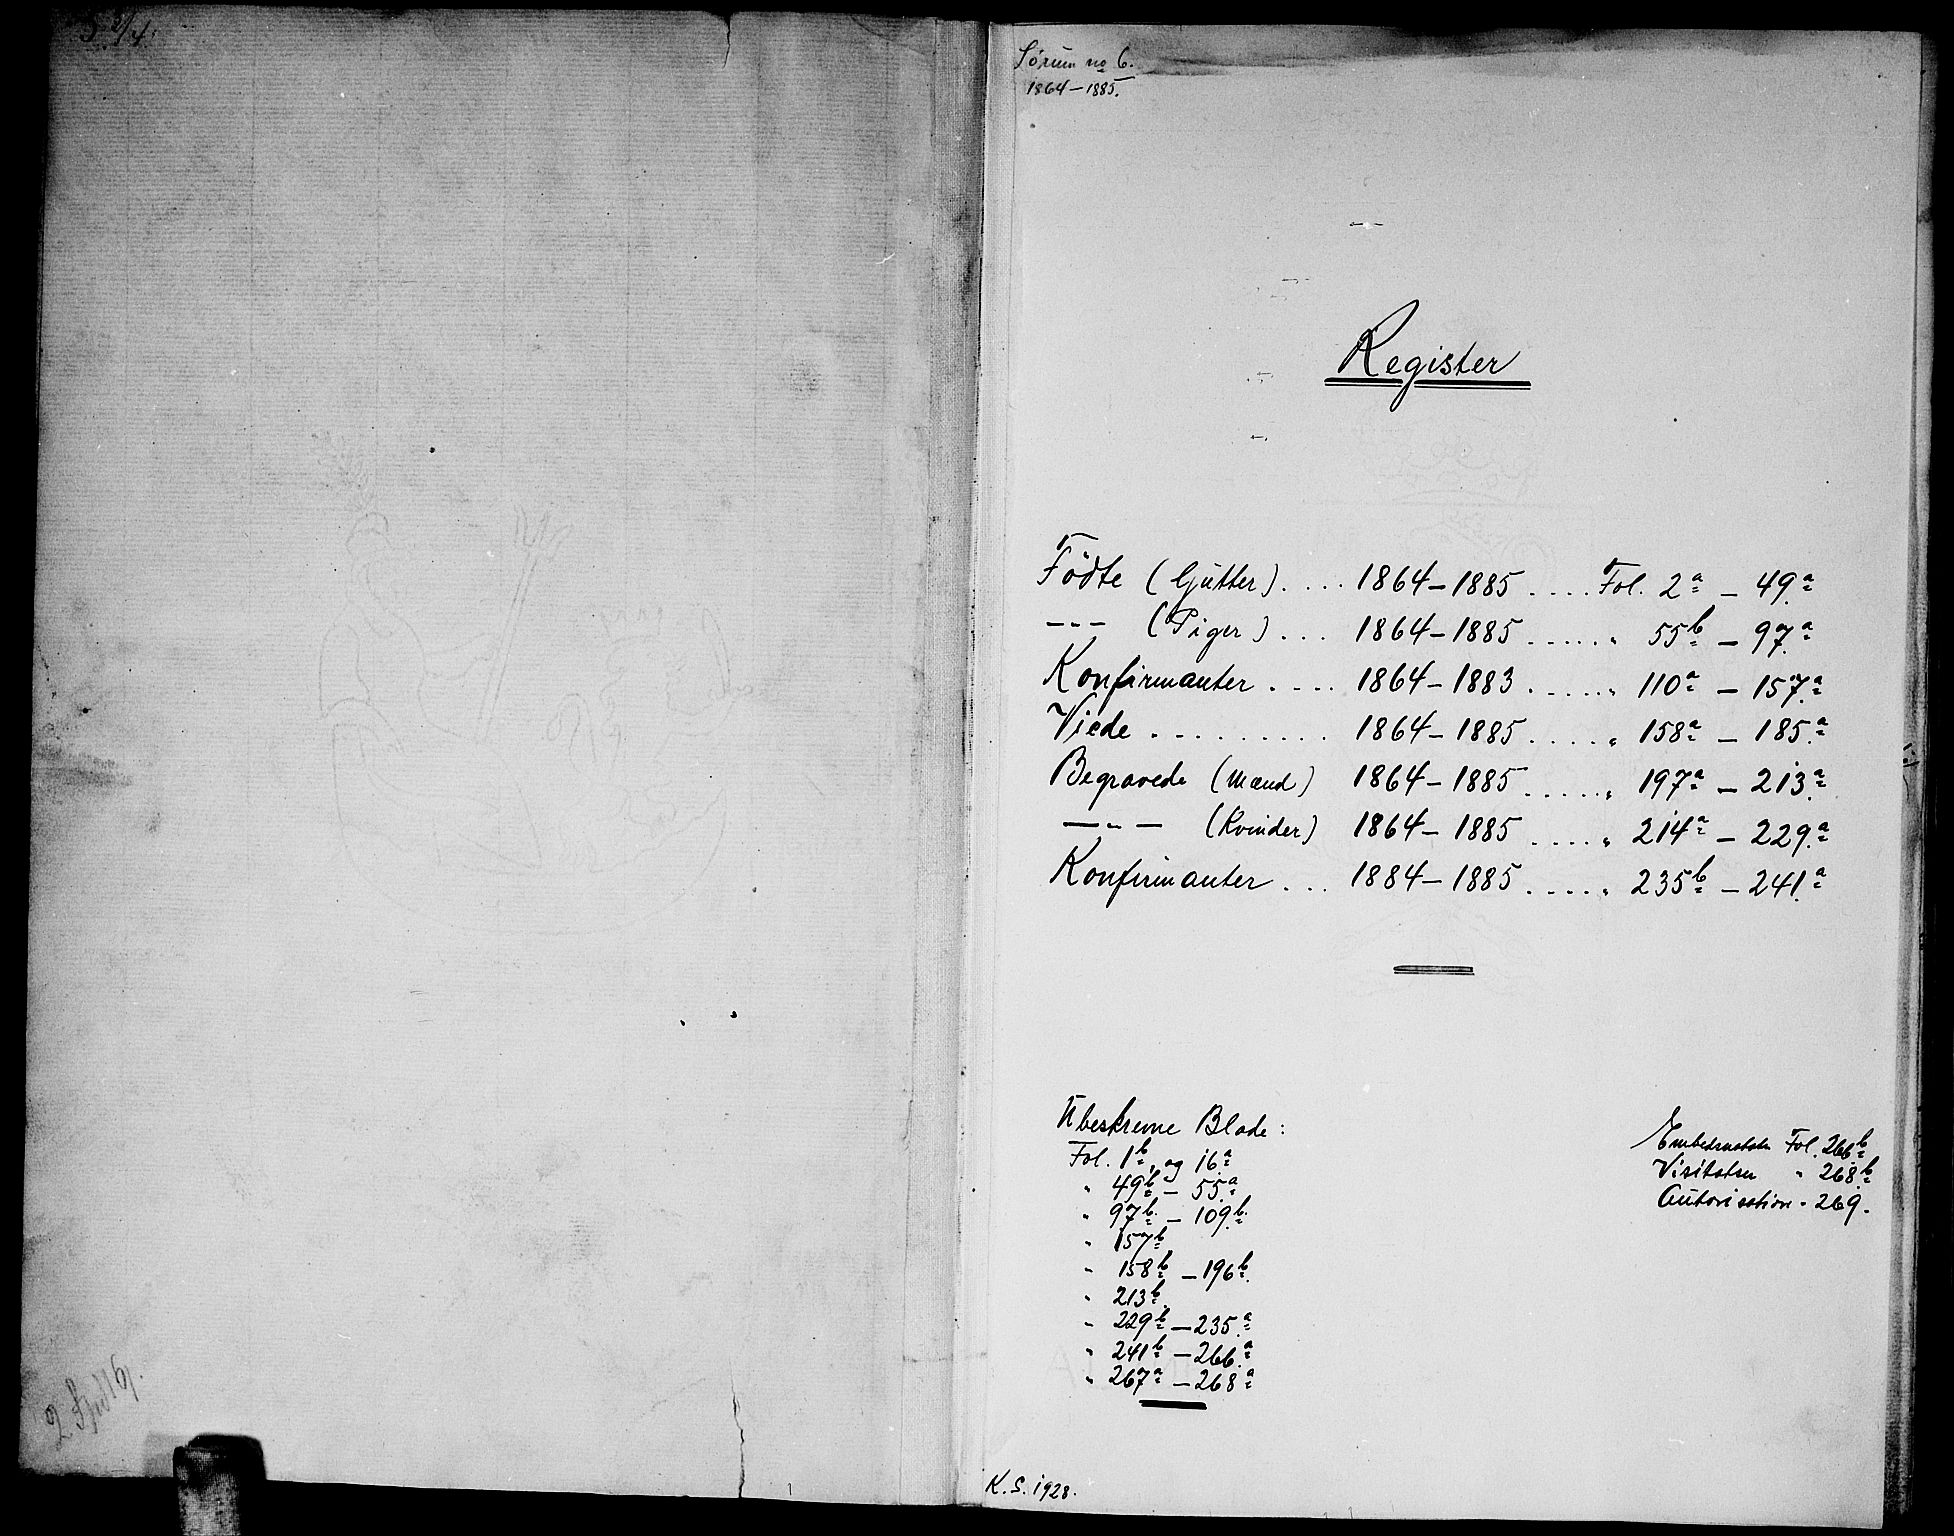 Sörum no 6.
1864-1885.
Register
Födte (Gutter) .... 1864-1885 .... Fol. 2a - 49a
-"- (Piger) ... 1864-1885 ...... " 55b - 97a
Konfirmanter .... 1864-1883 ...... " 110a - 157a
Viede ......... 1864-1885 ..... " 158a - 185a
Begravede (Mænd) 1864-1885 ..... " 197a - 213a
-"- (Kvinder) 1864-1885 ..... " 214a - 229a
Konfirmanter ... 1884-1885 ..... " 235b - 241a
Ubeskrevne Blade:
Fol. 1b, og 16a
" 49b - 55a
" 97b - 109b
" 157b
" 158b - 196b
" 213b
" 229b - 235a
" 241b - 266a
" 267a - 268a
Fol. 266b
Visitatser " 268b
Autorisation " 269.
K. S. 1928.